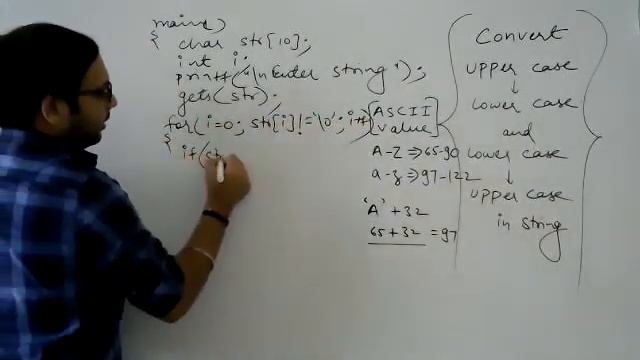 main()
{ char str[10];
int i;
printf("\n Enter string");
gets(str);
for(i=0; str[i]!='\0'; i++)
{ if(st
ASCII
value
A-Z ⇒ 65-90
a-z ⇒ 97-122
'A' + 32
65 + 32 = 97
Convert
upper case
↓
lower case
and
lower case
↓
upper case
in string